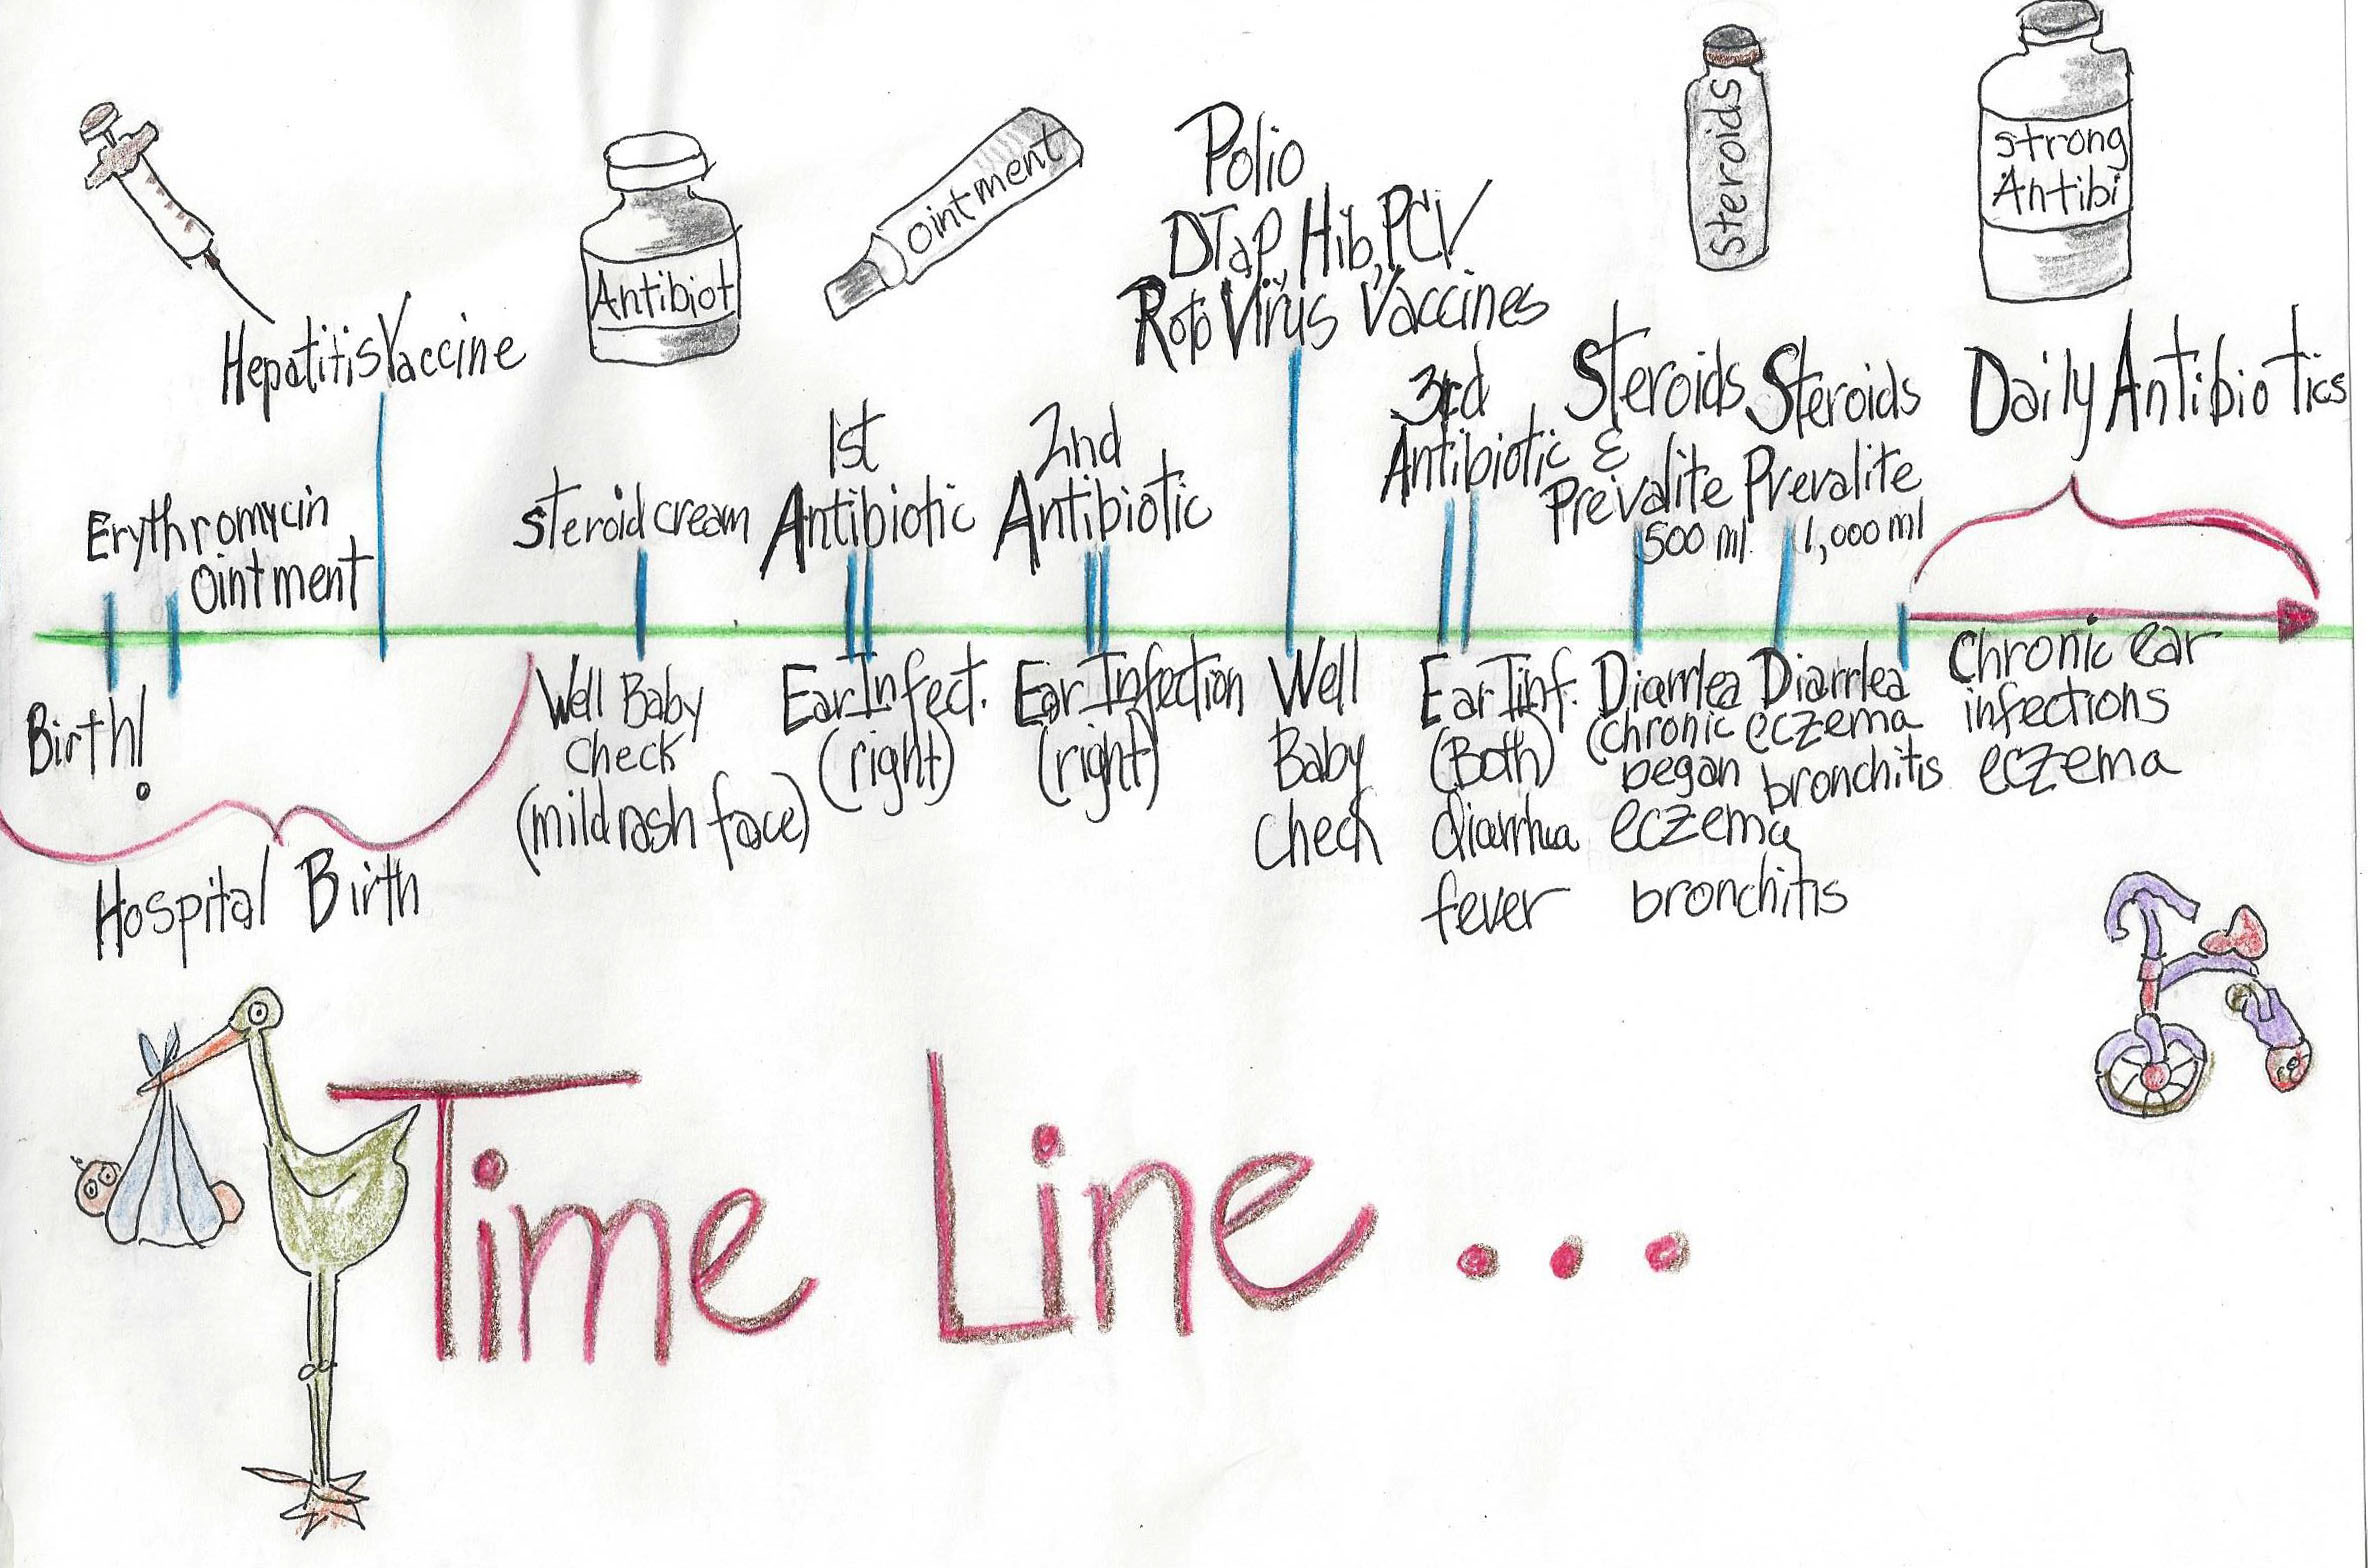 Antibiot
ointment
steroids
strong
Antibi
Hepatitis Vaccine
Polio
DTap, Hib, PCV
Roto Virus Vaccines
Erythromycin
ointment
steroid cream
1st
Antibiotic
2nd
Antibiotic
3rd
Antibiotic
Steroids
&
Prevalite
500 ml
Steroids
Prevalite
1,000 ml
Daily Antibiotics
Birth!
Hospital Birth
Well Baby
check
(mild rash face)
Ear Infect.
(right)
Ear Infection
(right)
Well
Baby
check
Ear Iinf.
(Both)
diarrhea
fever
Diarrlea
(chronic
began
eczema
bronchitis
Diarrlea
eczema
bronchitis
Chronic ear
infections
eczema
Time Line...